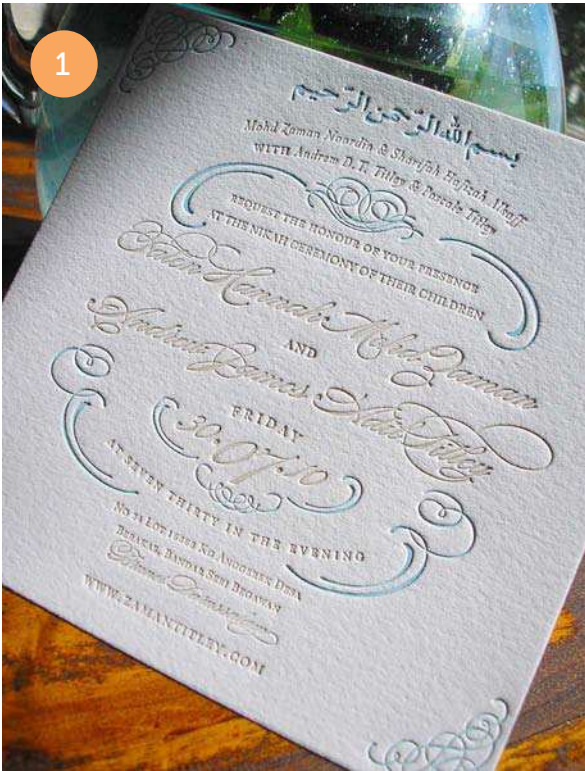 1
بسم الله الرحمن الرحيم
Mohd Zaman Noordin & Sharifah Hafizah Alkaff
WITH Andrew D. T. Titley & Pascale Titley
REQUEST THE HONOUR OF YOUR PRESENCE
AT THE NIKAH CEREMONY OF THEIR CHILDREN
Hannah Mohd Zaman
AND
Andrew James Titley
FRIDAY
30.07.10
AT SEVEN THIRTY IN THE EVENING
NO 24 LOT KG ANGGEREK DESA
BERAKAS, BANDAR SERI BEGAWAN
Brunei Darussalam
WWW.ZAMANTITLEY.COM